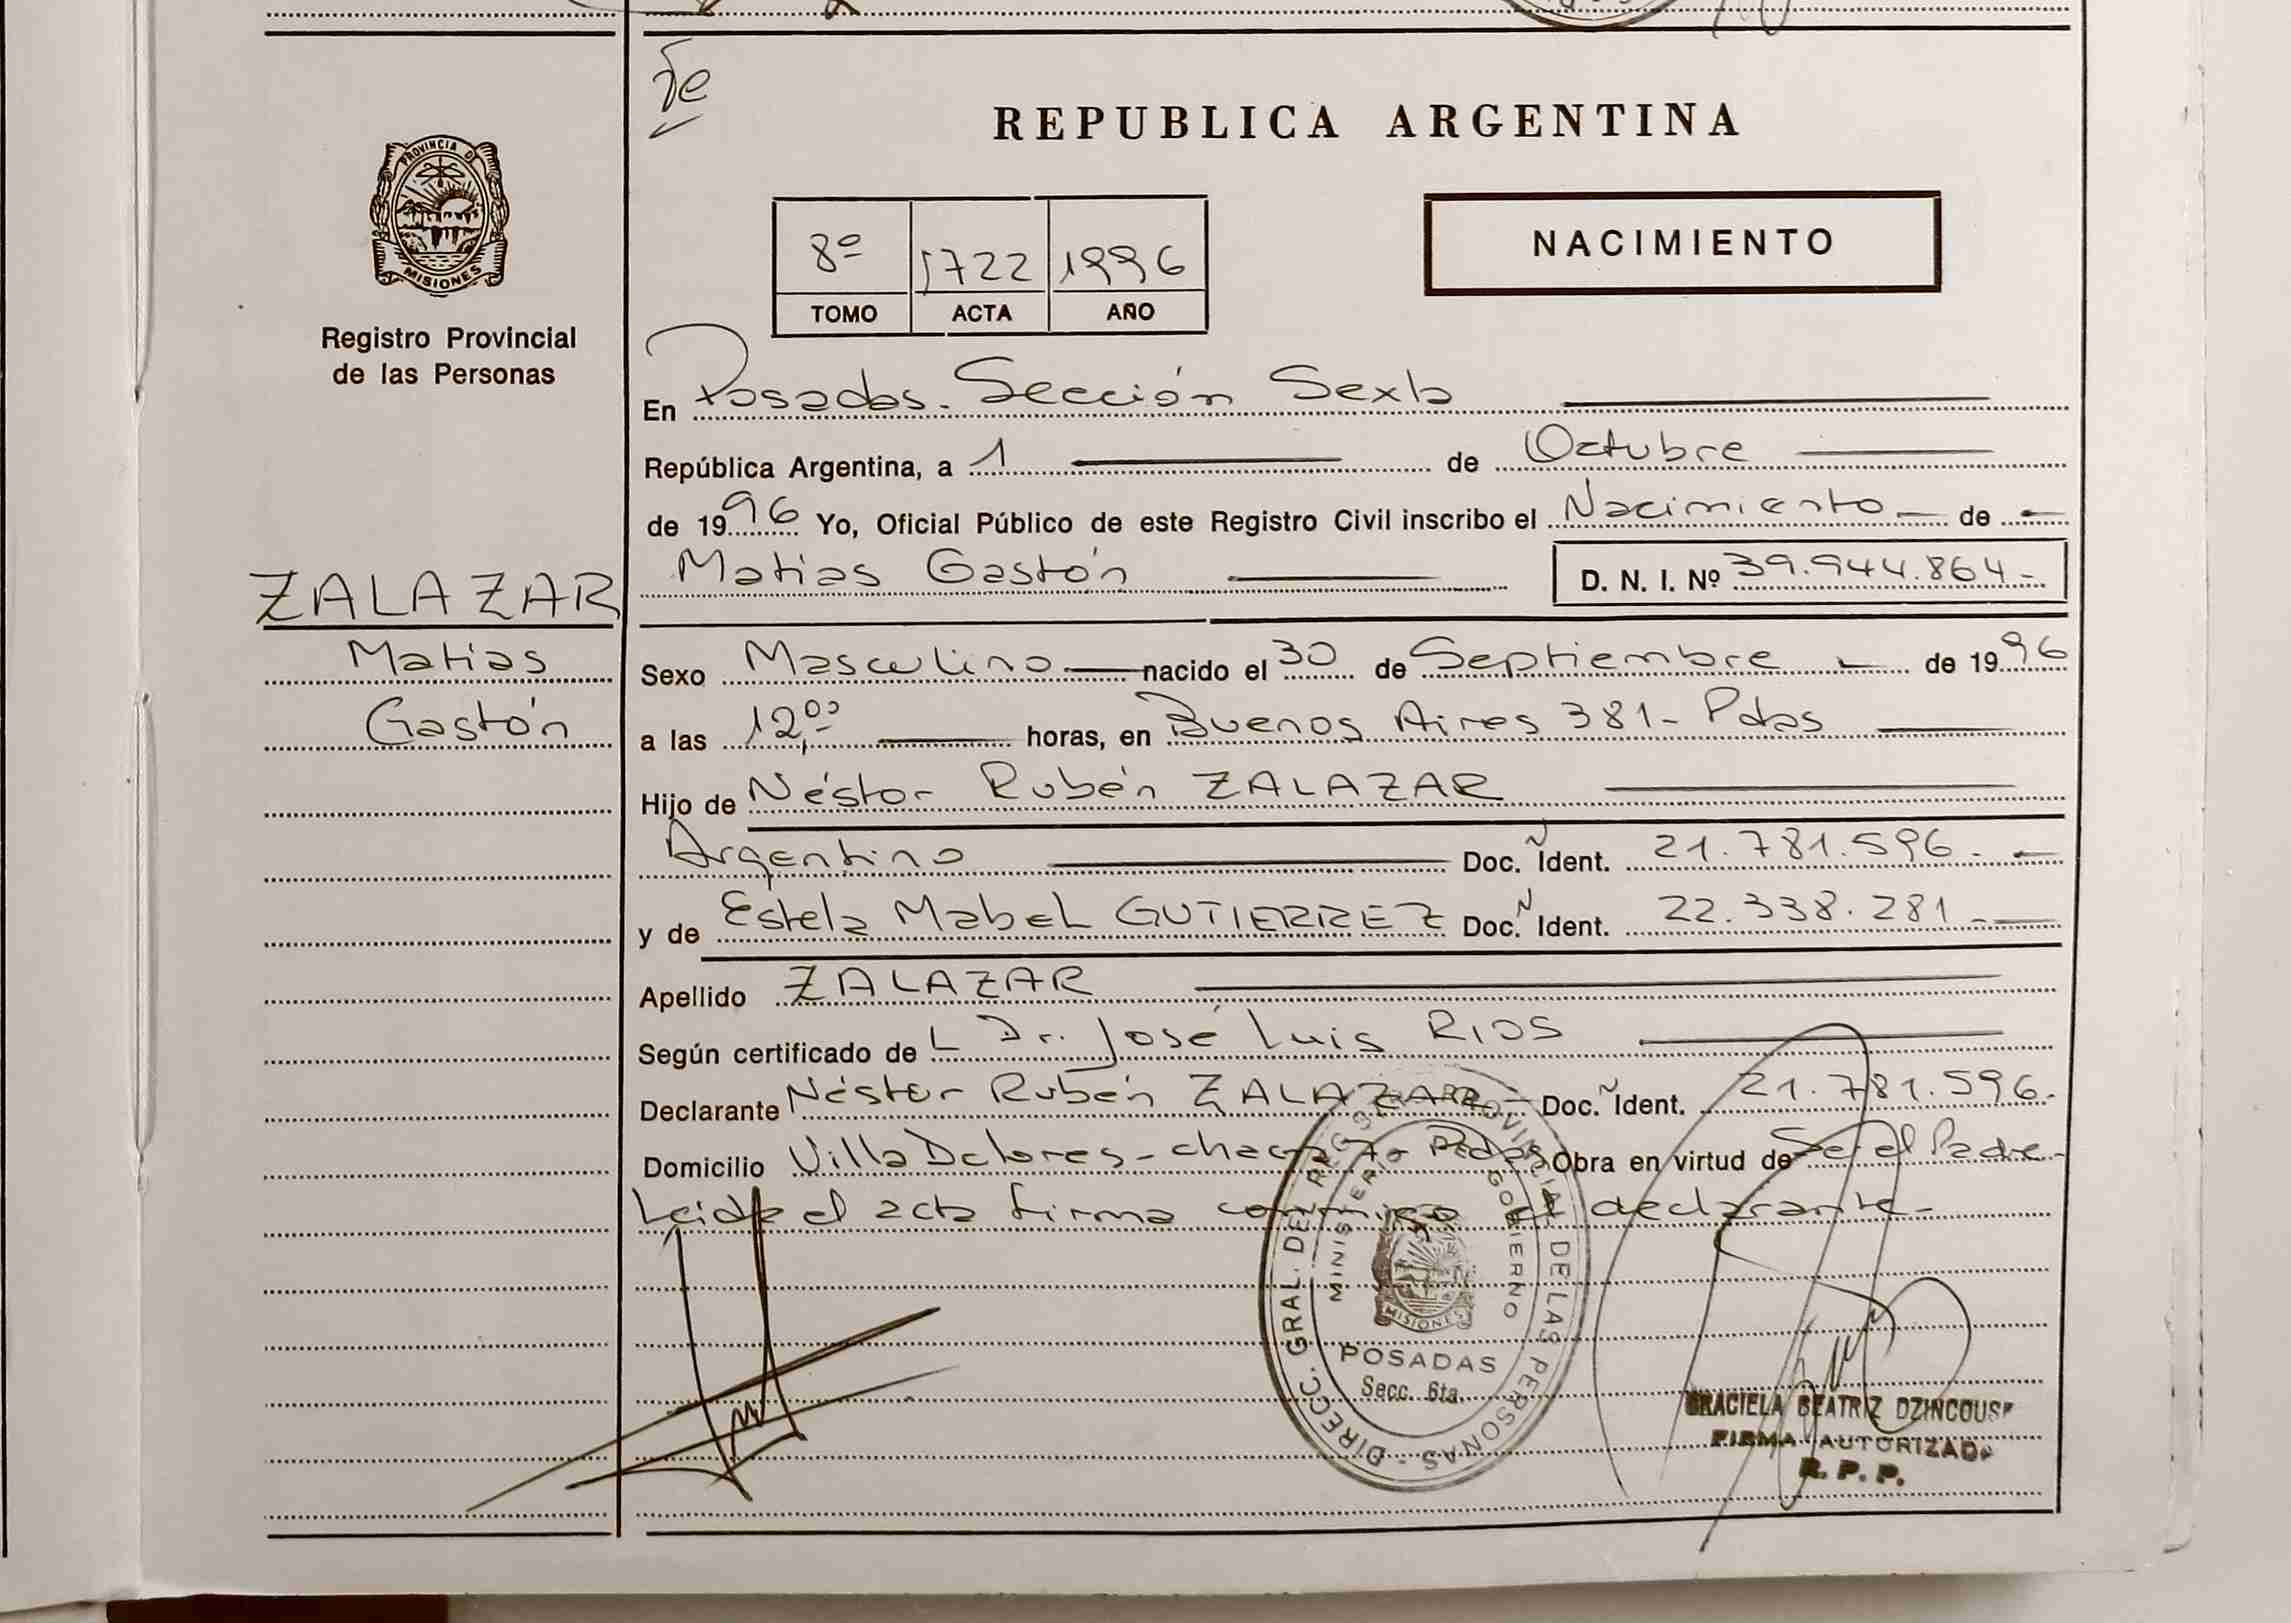 Te
REPUBLICA ARGENTINA
PROVINCIA DE
MISIONES
Registro Provincial
de las Personas
8º 1722 1996
TOMO ACTA AÑO
NACIMIENTO
En Posadas. Sección Sexta
República Argentina, a 1 de Octubre
de 1996 Yo, Oficial Público de este Registro Civil inscribo el Nacimiento de
Matias Gastón D. N. I. Nº 39.944.864-
ZALAZAR
Matias
Gastón
Sexo Masculino nacido el 30 de Septiembre de 1996
a las 12,00 horas, en Buenos Aires 381- Pdas
Hijo de Néstor Rubén ZALAZAR
Argentino Doc. Ident. 21.781.596.
y de Estela Mabel GUTIERREZ Doc. Ident. 22.338.281.
Apellido ZALAZAR
Según certificado de L Dr. José Luis RIOS
Declarante Néstor Rubén ZALAZAR- Doc. Ident. 21.781.596.
Domicilio Villa Dolores- Obra en virtud de Ser el Padre-
Leida el acta firma conmigo el declarante-
DIRECC. GRAL. DEL REG. PROVINCIAL DE LAS PERSONAS -
MINISTERIO GOBIERNO
MISIONES
POSADAS
Secc. 6ta.
GRACIELA BEATRIZ
FIRMA AUTORIZADA
R. P. P.